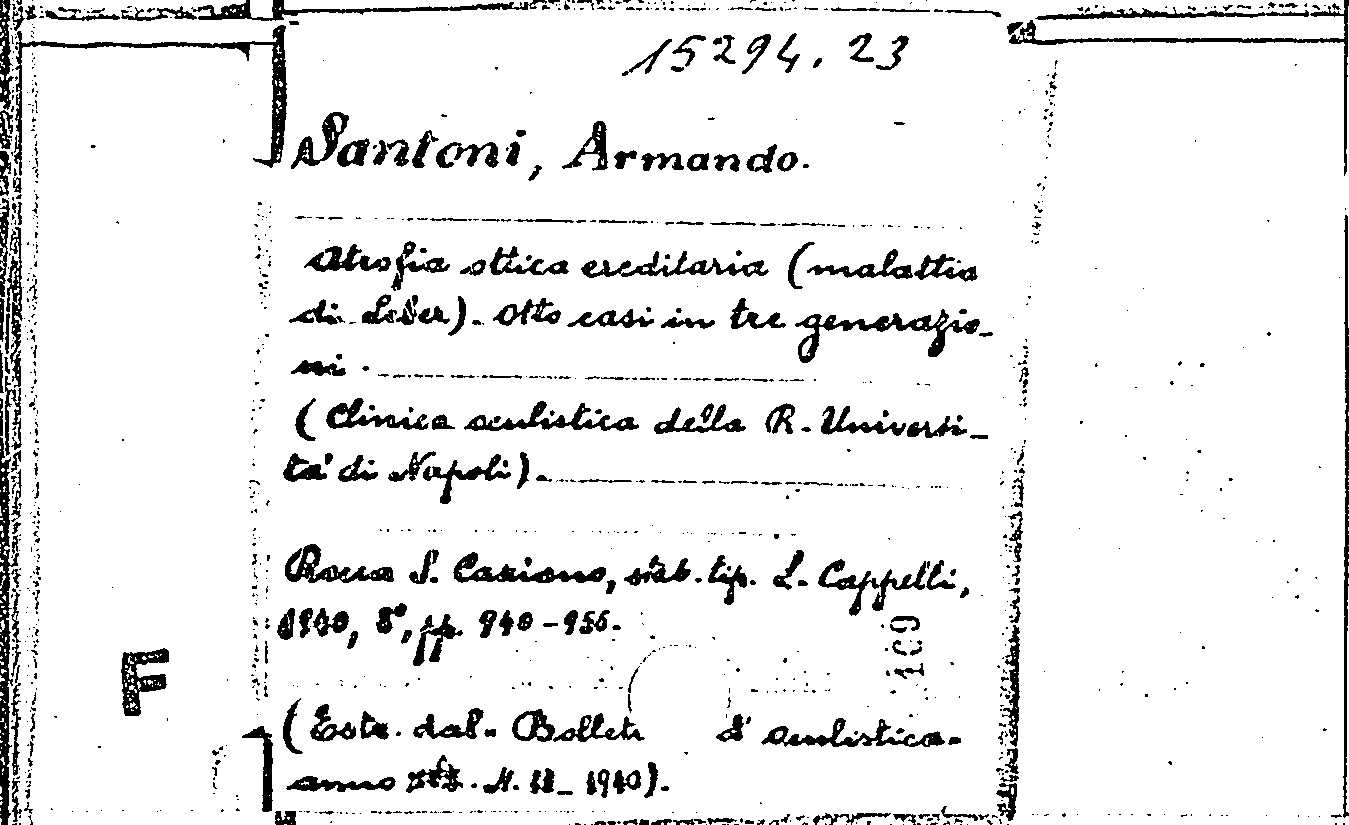 15294.23
Santoni, Armando.
Atrofia ottica ereditaria (malattia
di Leber). Otto casi in tre generazio-
ni.
(Clinica oculistica della R. Universi-
tà di Napoli).
Rocca S. Casciano, stab. tip. L. Cappelli,
1940, 8°, pp. 940-956.
109
F
(Estr. dal. Bollett d'oculistica.
anno N. 12- 1940).